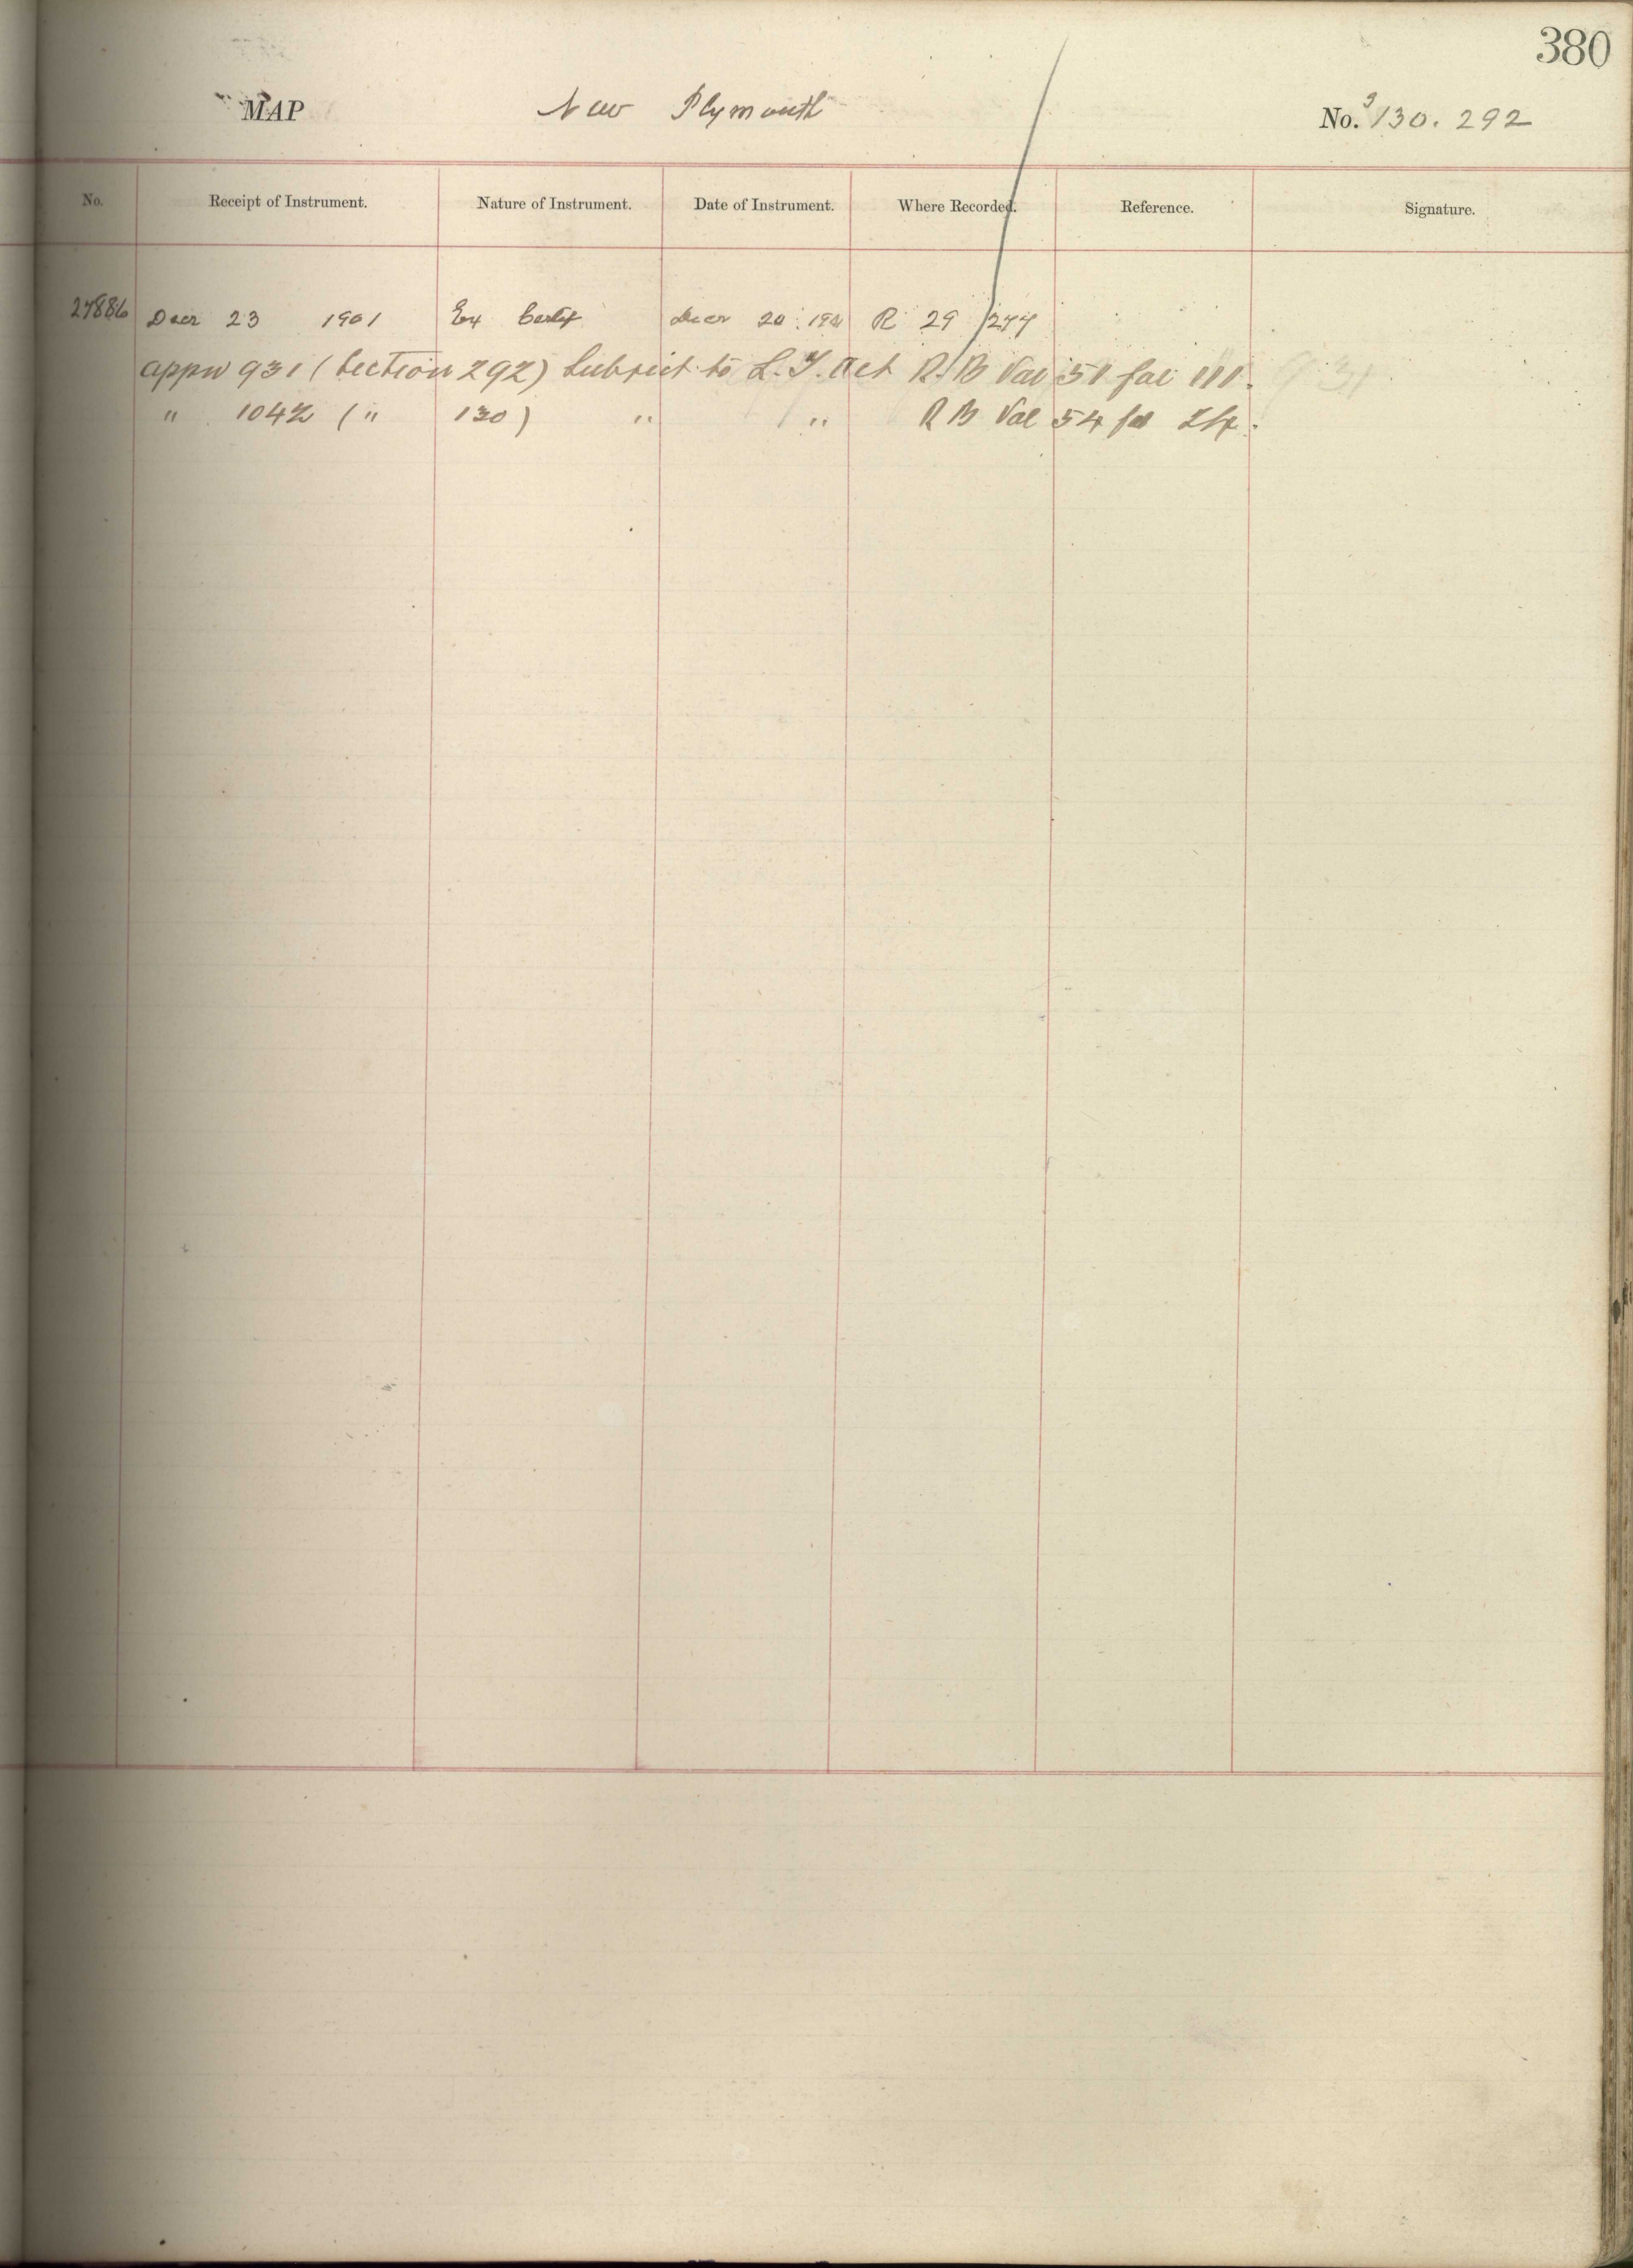 380
MAP New Plymouth No.s 130. 292
No. Receipt of Instrument. Nature of Instrument. Date of Instrument. Where Recorded. Reference. Signature.
27886 Decr 23 1901 Ex Certif Decr 20 1901 R 29 /277
Appn 931 (Section 292) Subject to L. T. Act R. B Vol 51 fol 111. 931
" 1042 ( " 130) " " R B Vol 54 fol